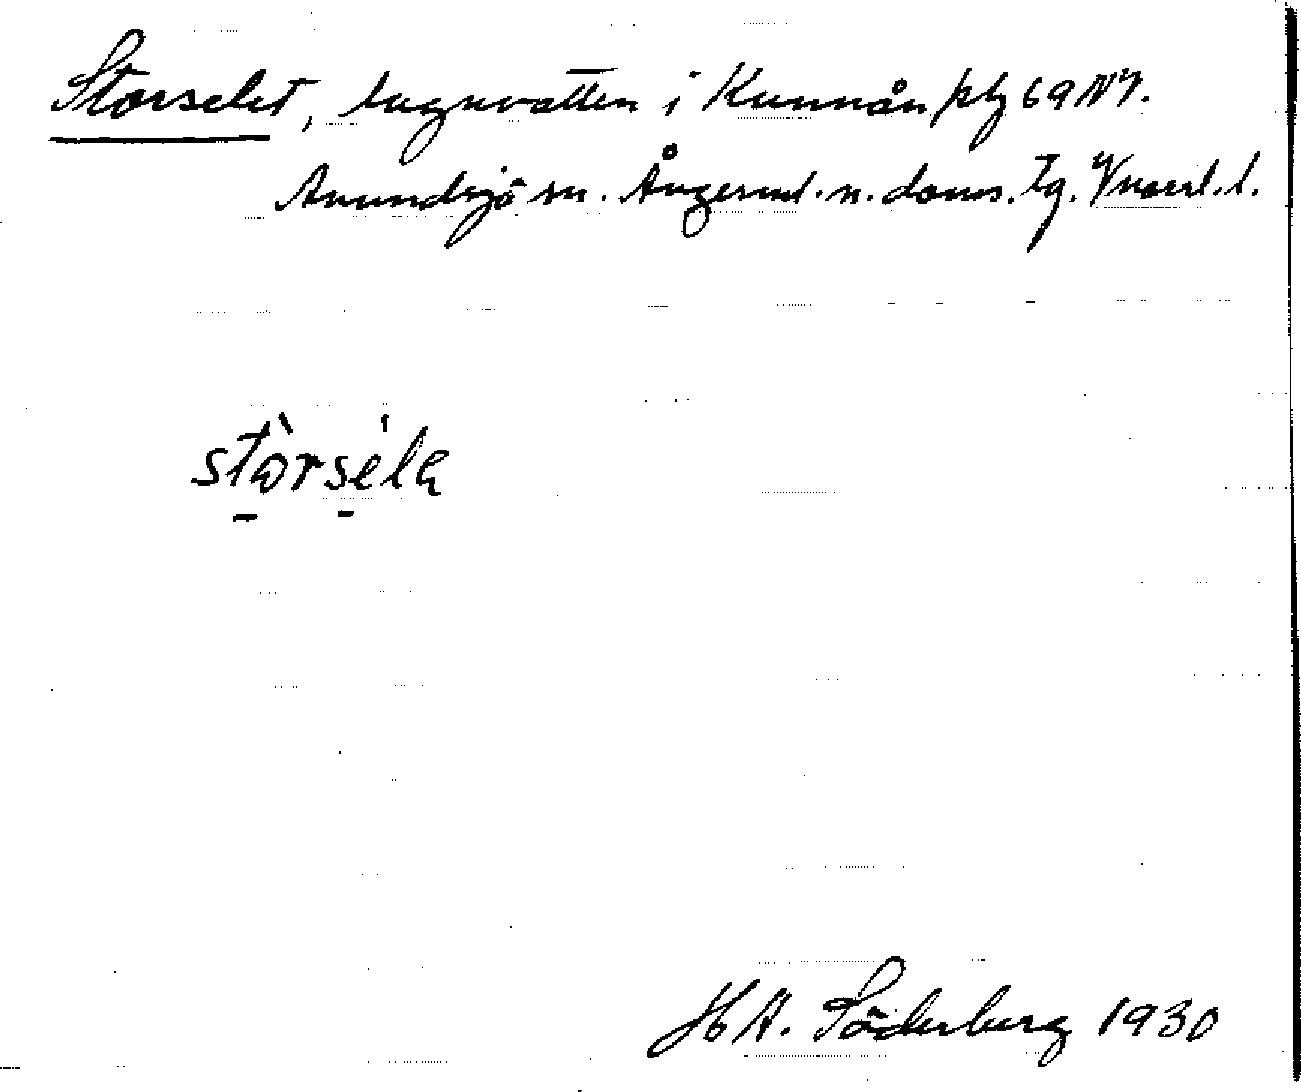 Storselet, lugnvatten i Kunnån ktz 69 NV.
Anundsjö sn. Ångerml. n. doms. tg. Vnorrl. l.
stòrséla
H A. Söderberg 1930